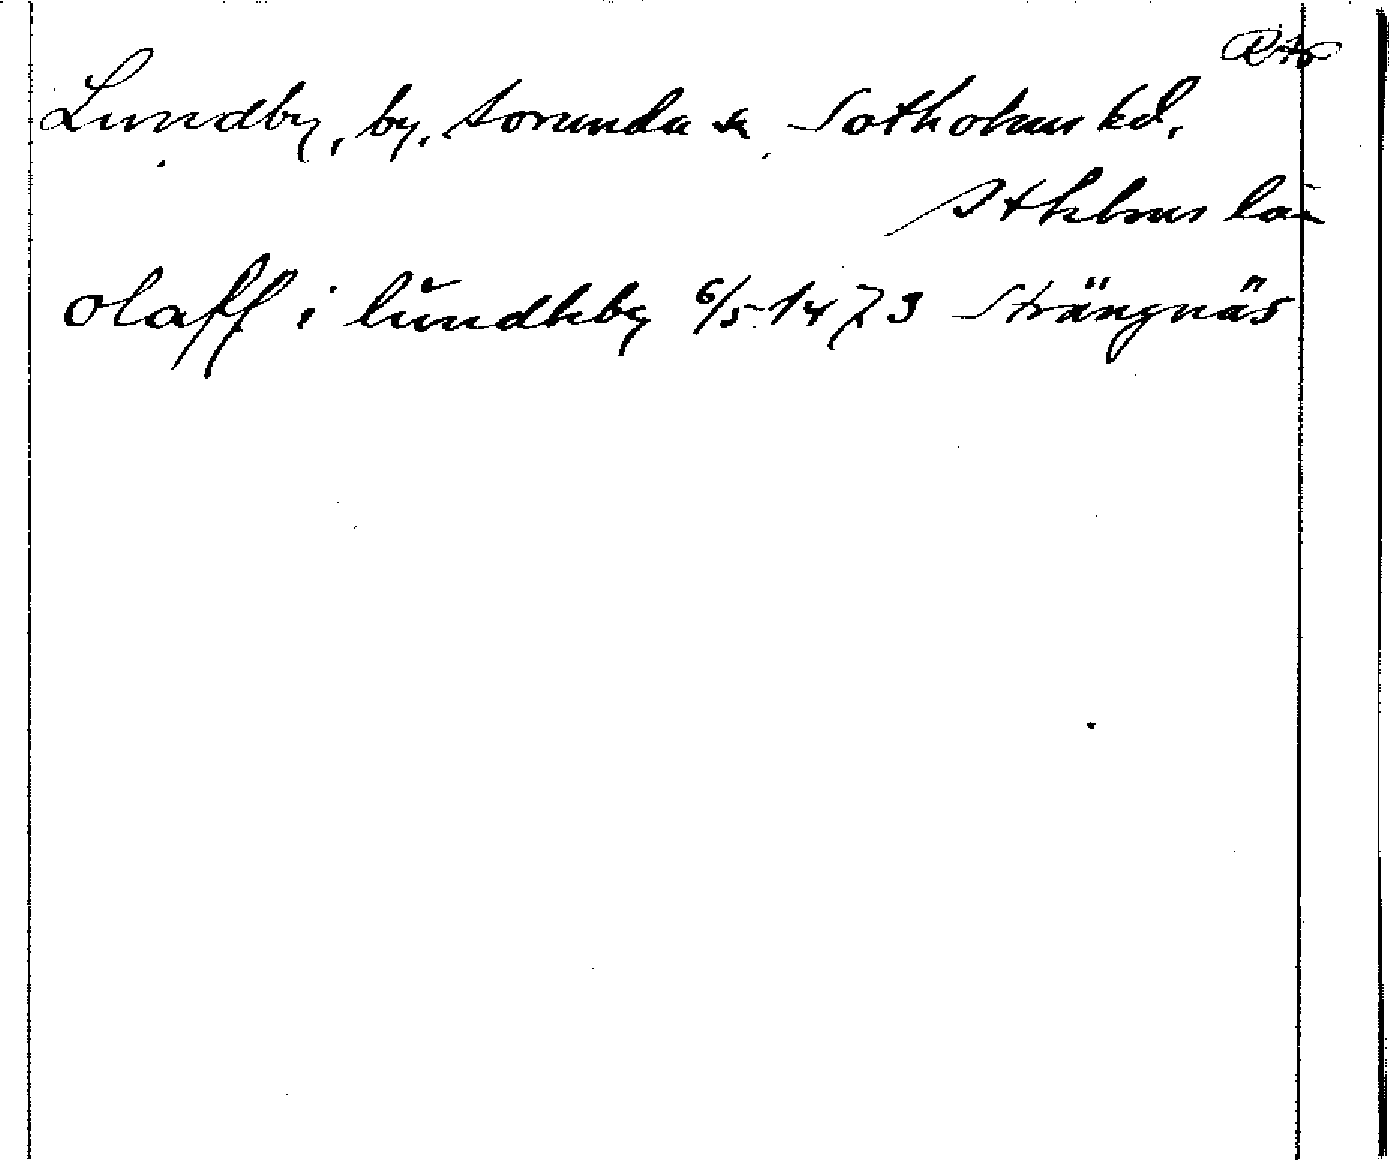 RAp
Lundby, by, Sorunda sn, Sotholms hd,
Sthlms län
olaff i lŭndhby 6/5 1473 Strängnäs